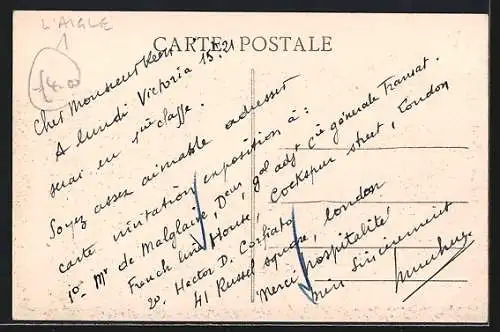 L'AIGLE
CARTE POSTALE
Cher Monsieur Kerr
A lundi Victoria 15.21
serai en 1ère classe.
Soyez assez aimable adresser
carte invitation exposition à :
1o- Mr de Malglaive, Deur gal adjt Cie générale Transat.
French line House, Cockspur street, London
2o. Hector D. Corfiato
41 Russel square, London
Merci hospitalité
bien sincèrement